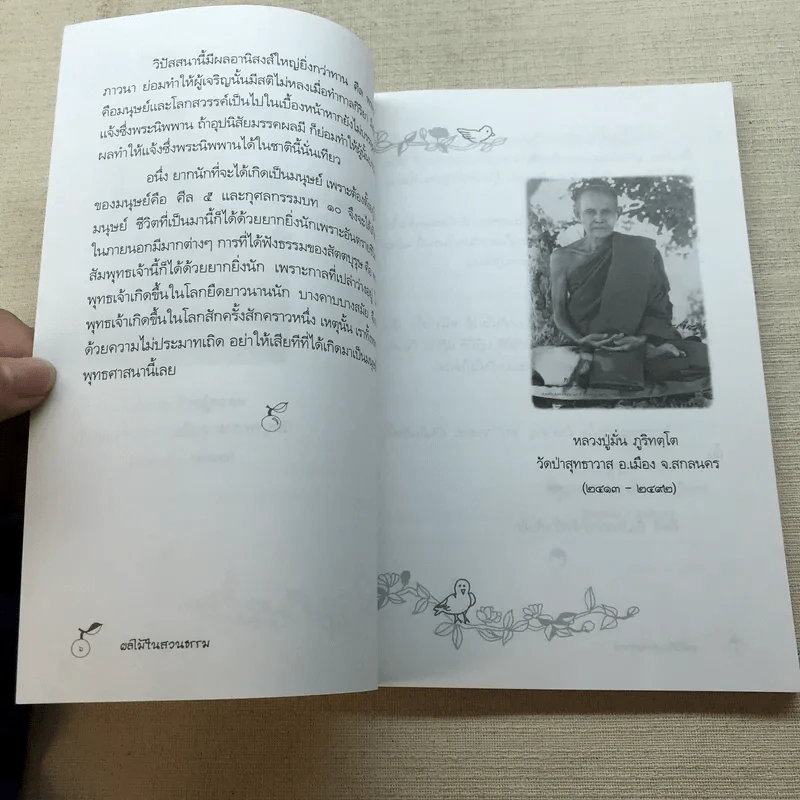 วิปัสสนานี้มีผลอานิสงส์ใหญ่ยิ่งกว่าทาน ศีล
ภาวนา ย่อมทำให้ผู้เจริญนั้นมีสติไม่หลงเมื่อทำกาลกิริยา
คือมนุษย์และโลกสวรรค์เป็นไปในเบื้องหน้าหากยังไม่
แจ้งซึ่งพระนิพพาน ถ้าอุปนิสัยมรรคผลมี ก็ย่อมทำให้ผู้นั้น
ผลทำให้แจ้งซึ่งพระนิพพานได้ในชาตินี้นั่นเทียว
อนึ่ง ยากนักที่จะได้เกิดเป็นมนุษย์ เพราะต้องตั้งอยู่
ของมนุษย์คือ ศีล ๕ และกุศลกรรมบท ๑๐ จึงจะได้
มนุษย์ ชีวิตที่เป็นมานี้ก็ได้ด้วยยากยิ่งนักเพราะอันตราย
ในภายนอกมีมากต่างๆ การที่ได้ฟังธรรมของสัตตบุรุษ คือ
สัมพุทธเจ้านี้ก็ได้ด้วยยากยิ่งนัก เพราะกาลที่เปล่าว่างอยู่
พุทธเจ้าเกิดขึ้นในโลกยืดยาวนานนัก บางคาบบางสมัย
พุทธเจ้าเกิดขึ้นในโลกสักครั้งสักคราวหนึ่ง เหตุนั้น เราทั้ง
ด้วยความไม่ประมาทเถิด อย่าให้เสียทีที่ได้เกิดมาเป็นมนุษย์
พุทธศาสนานี้เลย
๖ ผลไม้ในสวนธรรม
หลวงปู่มั่น ภูริทตฺโต
วัดป่าสุทธาวาส อ.เมือง จ.สกลนคร
(๒๔๑๓ - ๒๔๙๒)